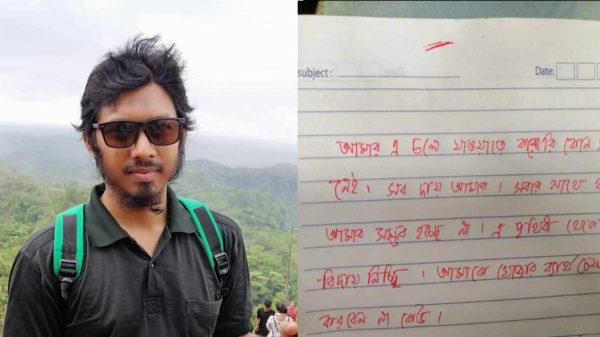 subject : Date:
আমার এ চলে যাওয়াতে কারোরি কোন
নেই। সব দায় আমার। সবার সাথে
আমার সম্ভব হচ্ছে না। এ পৃথিবী থেকে
বিদায় নিচ্ছি। আমাকে খোজার ব্যর্থ
করবেন না কেউ।